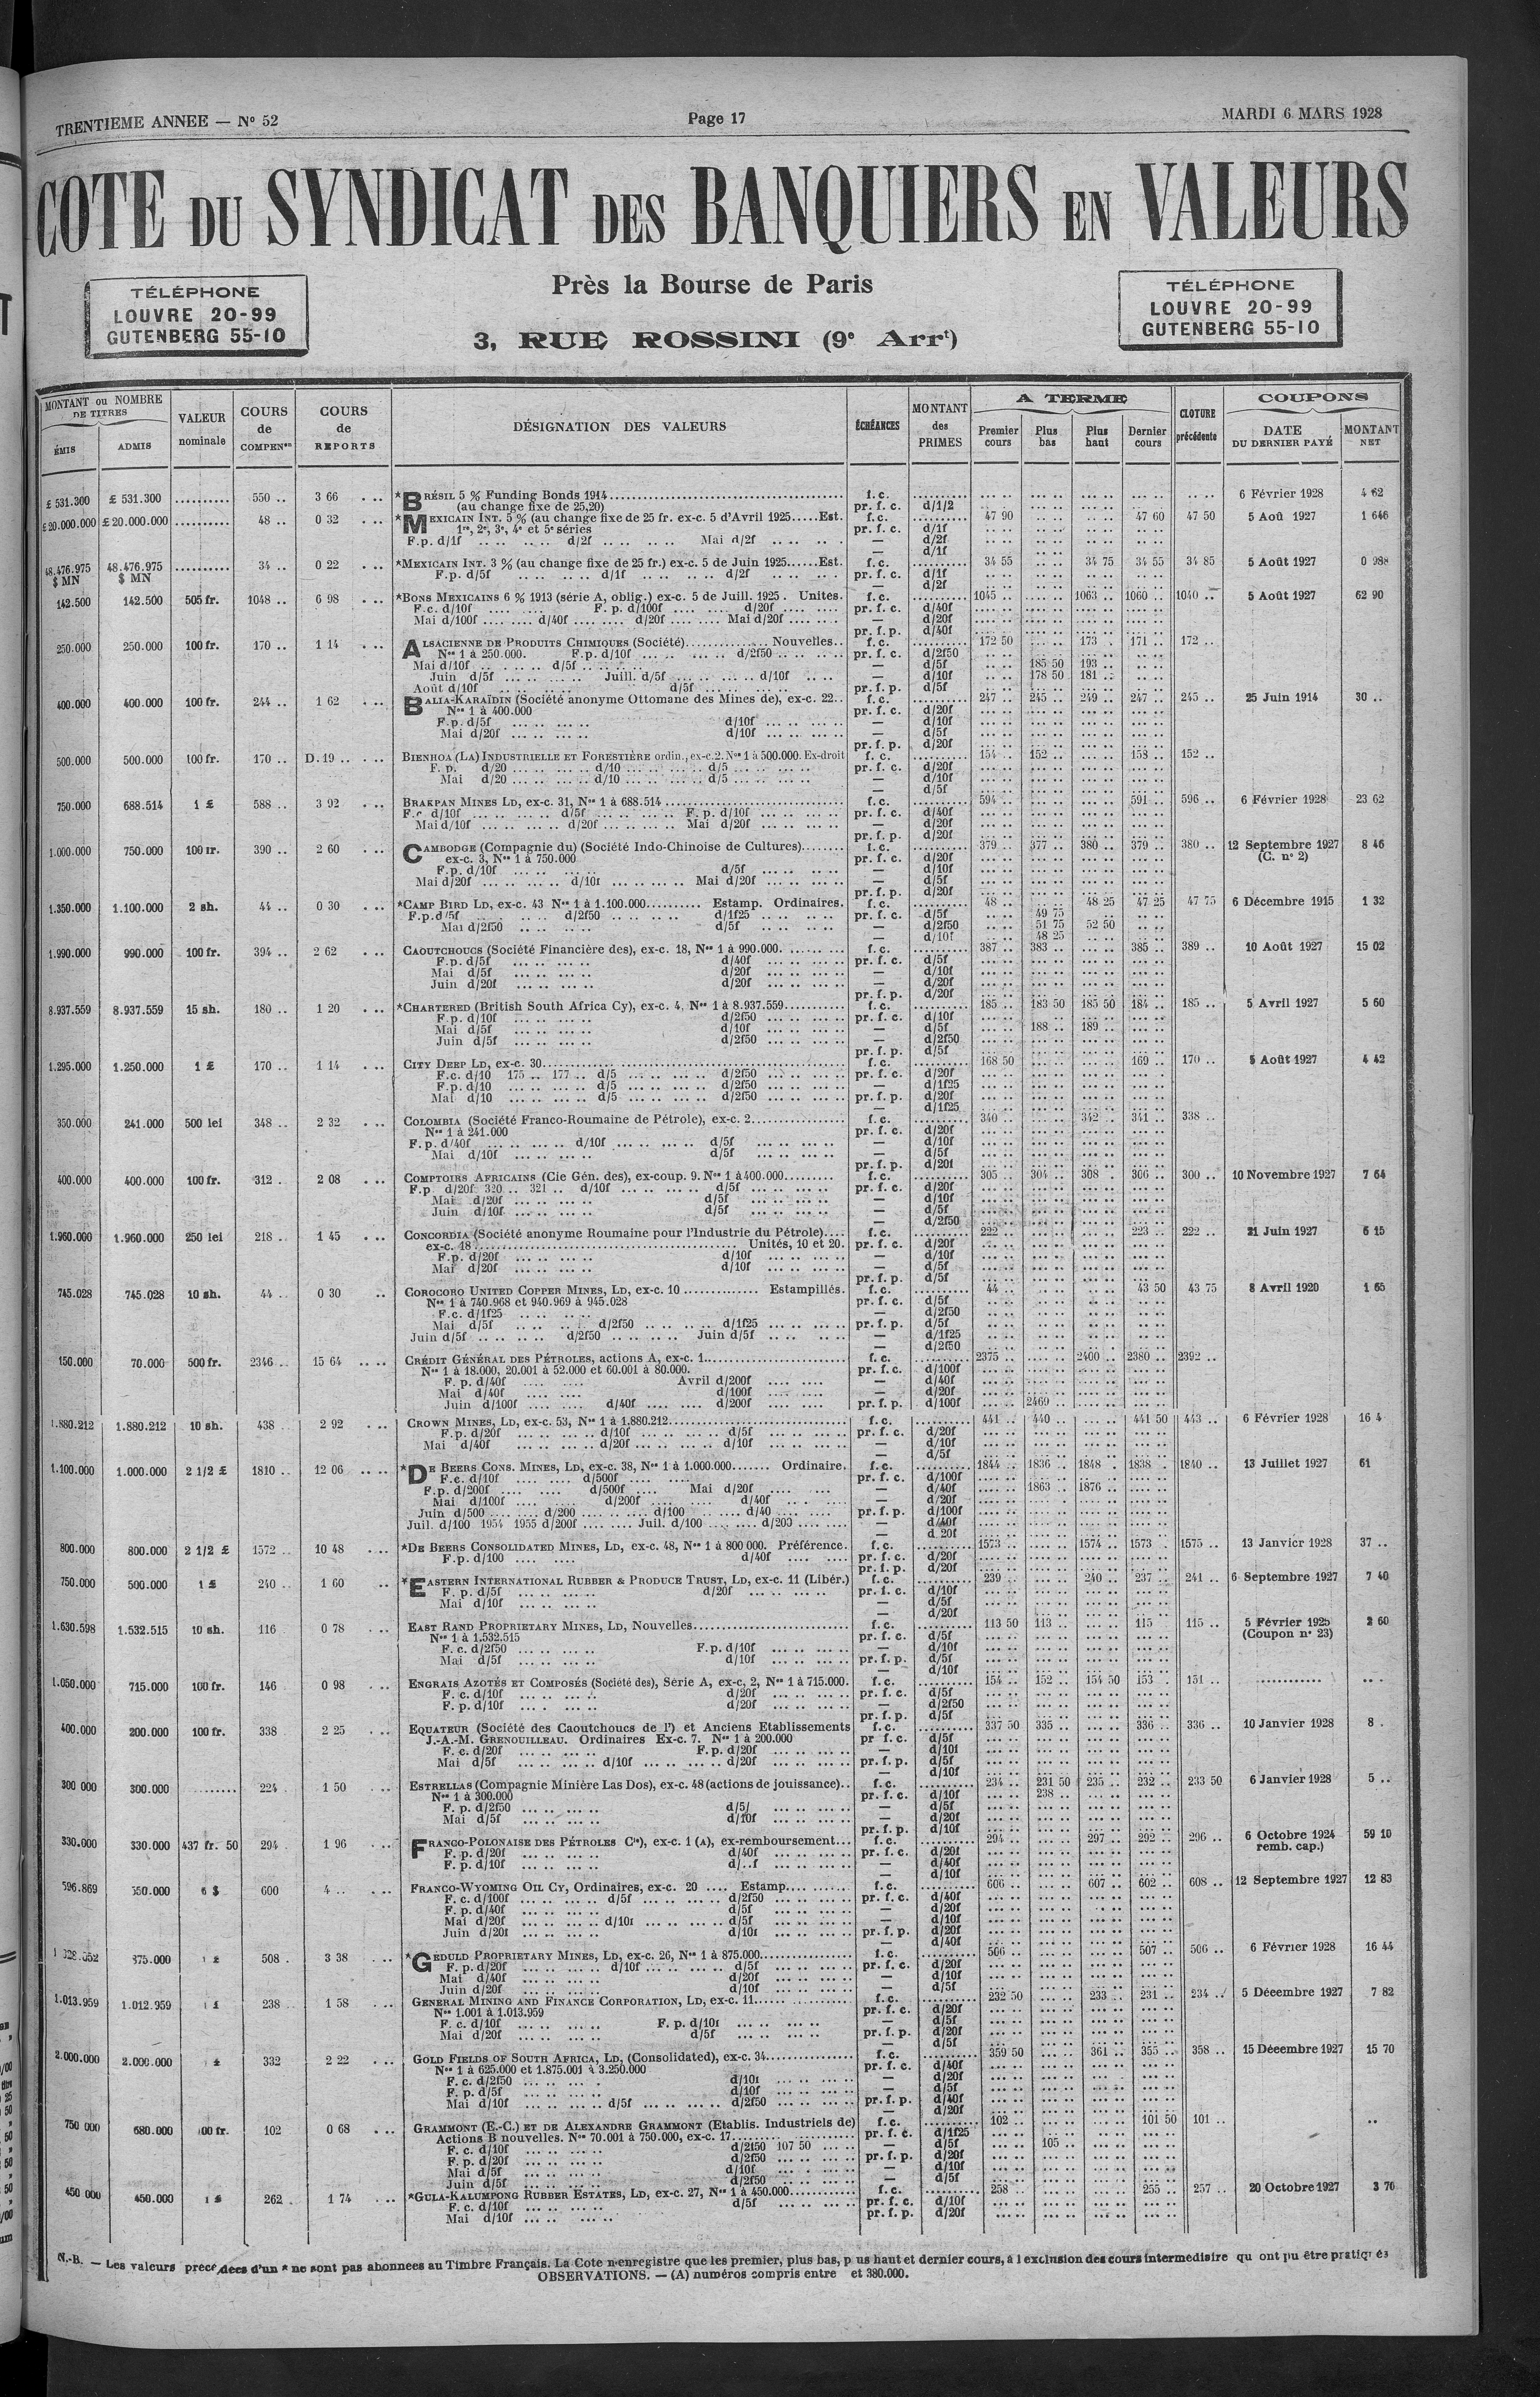 TRENTIEME ANNEE — N° 52
Page 17
MARDI 6 MARS 1928
COTE DU SYNDICAT DES BANQUIERS EN VALEURS
TÉLÉPHONE
LOUVRE 20-99
GUTENBERG 55-10
Près la Bourse de Paris
3, RUE ROSSINI (9e Arrt)
TÉLÉPHONE
LOUVRE 20-99
GUTENBERG 55-10
MONTANT ou NOMBRE DE TITRES
ÉMIS ADMIS
VALEUR nominale
COURS de COMPENon
COURS de REPORTS
DÉSIGNATION DES VALEURS
ÉCHÉANCES
MONTANT des PRIMES
A TERME
Premier cours Plus bas Plus haut Dernier cours
CLOTURE précédente
COUPONS
DATE DU DERNIER PAYÉ MONTANT NET
£ 531.300 £ 531.300 .......... 550 .. 3 66 *BRÉSIL 5 % Funding Bonds 1914 f. c. 6 Février 1928 4 62
(au change fixe de 25,20) pr. f. c. d/1/2
£ 20.000.000 £ 20.000.000 .......... 48 .. 0 32 *MEXICAIN INT. 5 % (au change fixe de 25 fr. ex-c. 5 d'Avril 1925.....Est. f. c. 47 90 47 60 47 50 5 Aoû 1927 1 646
1re, 2e, 3e, 4e et 5e séries pr. f. c. d/1f
F.p. d/1f d/2f Mai d/2f — d/2f
— d/1f
48.476.975 $ MN 48.476.975 $ MN .......... 34 .. 0 22 *MEXICAIN INT. 3 % (au change fixe de 25 fr.) ex-c. 5 de Juin 1925......Est. f. c. 34 55 34 75 34 55 34 85 5 Août 1927 0 988
F.p. d/5f d/1f d/2f pr. f. c. d/1f
— d/2f
142.500 142.500 505 fr. 1048 .. 6 98 *BONS MEXICAINS 6 % 1913 (série A, oblig.) ex-c. 5 de Juill. 1925 . Unites. f. c. 1045 .. 1063 .. 1060 .. 1040 .. 5 Août 1927 62 90
F.c. d/10f F. p. d/100f d/20f pr. f. c. d/40f
Mai d/100f d/40f d/20f Mai d/20f — d/20f
pr. f. p. d/40f
250.000 250.000 100 fr. 170 .. 1 14 ALSACIENNE DE PRODUITS CHIMIQUES (Société) Nouvelles.. f. c. 172 50 173 .. 171 .. 172 ..
Nos 1 à 250.000. F.p. d/10f d/2f50 pr. f. c. d/2f50
Mai d/10f d/5f — d/5f 185 50 193 ..
Juin d/5f Juill. d/5f d/10f — d/10f 178 50 181 ..
Août d/10f d/5f pr. f. p. d/5f
400.000 400.000 100 fr. 244 .. 1 62 BALIA-KARAÏDIN (Société anonyme Ottomane des Mines de), ex-c. 22.. f. c. 247 .. 245 .. 249 .. 247 .. 245 .. 25 Juin 1914 30 ..
Nos 1 à 400.000 pr. f. c. d/20f
F.p. d/5f d/10f — d/10f
Mai d/20f d/10f — d/5f
pr. f. p. d/20f
500.000 500.000 100 fr. 170 .. D.19 .. BIENHOA (LA) INDUSTRIELLE ET FORESTIÈRE ordin., ex-c.2. Nos 1 à 500.000. Ex-droit f. c. 154 .. 152 .. 158 .. 152 ..
F. p. d/20 d/10 d/5 pr. f. c. d/20f
Mai d/20 d/10 d/5 — d/10f
— d/5f
750.000 688.514 1 £ 588 .. 3 92 BRAKPAN MINES LD, ex-c. 31, Nos 1 à 688.514 f. c. 594 .. 591 .. 596 .. 6 Février 1928 23 62
F.c d/10f d/5f F. p. d/10f pr. f. c. d/40f
Mai d/10f d/20f Mai d/20f — d/20f
pr. f. p. d/20f
1.000.000 750.000 100 fr. 390 .. 2 60 CAMBODGE (Compagnie du) (Société Indo-Chinoise de Cultures) f. c. 379 .. 377 .. 380 .. 379 .. 380 .. 12 Septembre 1927 8 46
ex-c. 3, Nos 1 à 750.000 pr. f. c. d/20f (C. n° 2)
F.p. d/10f d/5f — d/10f
Mai d/20f d/10f Mai d/20f — d/5f
pr. f. p. d/20f
1.350.000 1.100.000 2 sh. 44 .. 0 30 *CAMP BIRD LD, ex-c. 43 Nos 1 à 1.100.000 Estamp. Ordinaires. f. c. 48 .. 48 25 47 25 47 75 6 Décembre 1915 1 32
F.p. d/5f d/2f50 d/1f25 pr. f. c. d/5f 49 75
Mai d/2f50 d/5f — d/2f50 51 75 52 50
— d/10f 48 25
1.990.000 990.000 100 fr. 394 .. 2 62 CAOUTCHOUCS (Société Financière des), ex-c. 18, Nos 1 à 990.000. f. c. 387 .. 383 .. 385 .. 389 .. 10 Août 1927 15 02
F.p. d/5f d/40f pr. f. c. d/5f
Mai d/5f d/20f — d/10f
Juin d/20f d/20f — d/20f
pr. f. p. d/20f
8.937.559 8.937.559 15 sh. 180 .. 1 20 *CHARTERED (British South Africa Cy), ex-c. 4, Nos 1 à 8.937.559 f. c. 185 .. 183 50 185 50 184 .. 185 .. 5 Avril 1927 5 60
F.p. d/10f d/2f50 pr. f. c. d/10f
Mai d/5f d/10f — d/5f 188 .. 189 ..
Juin d/5f d/2f50 — d/2f50
pr. f. p. d/5f
1.295.000 1.250.000 1 £ 170 .. 1 14 CITY DEEP LD, ex-c. 30 f. c. 168 50 169 .. 170 .. 5 Août 1927 4 42
F.c. d/10 175 .. 177 .. d/5 d/2f50 pr. f. c. d/20f
F.p. d/10 d/5 d/2f50 — d/1f25
Mai d/10 d/5 d/2f50 pr. f. p. d/20f
— d/1f25
350.000 241.000 500 lei 348 .. 2 32 COLOMBIA (Société Franco-Roumaine de Pétrole), ex-c. 2 f. c. 340 .. 342 .. 341 .. 338 ..
Nos 1 à 241.000 pr. f. c. d/20f
F.p. d/40f d/10f d/5f — d/10f
Mai d/10f d/5f — d/5f
pr. f. p. d/20f
400.000 400.000 100 fr. 312 . 2 08 COMPTOIRS AFRICAINS (Cie Gén. des), ex-coup. 9. Nos 1 à 400.000 f. c. 305 .. 304 .. 308 . 306 .. 300 .. 10 Novembre 1927 7 64
F.p d/20f 320 .. 321 .. d/10f d/5f pr. f. c. d/20f
Mai d/20f d/5f — d/10f
Juin d/10f d/5f — d/5f
— d/2f50
1.960.000 1.960.000 250 lei 218 .. 1 45 CONCORDIA (Société anonyme Roumaine pour l'Industrie du Pétrole) f. c. 222 .. 223 .. 222 .. 21 Juin 1927 6 15
ex-c. 18 Unités, 10 et 20. pr. f. c. d/20f
F.p. d/20f d/10f — d/10f
Mai d/20f d/10f — d/5f
pr. f. p. d/5f
745.028 745.028 10 sh. 44 .. 0 30 COROCORO UNITED COPPER MINES, LD, ex-c. 10 Estampillés. f. c. 44 .. 43 50 43 75 8 Avril 1920 1 65
Nos 1 à 740.968 et 940.969 à 945.028 pr. f. c. d/5f
F.c. d/1f25 — d/2f50
Mai d/5f d/2f50 d/1f25 pr. f. p. d/5f
Juin d/5f d/2f50 Juin d/5f — d/1f25
— d/2f50
150.000 70.000 500 fr. 2346 .. 15 64 CRÉDIT GÉNÉRAL DES PÉTROLES, actions A, ex-c. 1 f. c. 2375 .. 2400 .. 2380 .. 2392 ..
Nos 1 à 18.000, 20.001 à 52.000 et 60.001 à 80.000. pr. f. c. d/100f
F. p. d/40f Avril d/200f — d/40f
Mai d/40f d/100f — d/20f
Juin d/100f d/40f d/200f pr. f. p. d/100f 2469
1.880.212 1.880.212 10 sh. 438 2 92 CROWN MINES, LD, ex-c. 53, Nos 1 à 1.880.212 f. c. 441 .. 440 .. 441 50 443 .. 6 Février 1928 16 4
F.p. d/20f d/10f d/5f pr. f. c. d/20f
Mai d/40f d/20f d/10f — d/10f
— d/5f
1.100.000 1.000.000 2 1/2 £ 1810 .. 12 06 *DE BEERS CONS. MINES, LD, ex-c. 38, Nos 1 à 1.000.000 Ordinaire. f. c. 1844 .. 1836 .. 1848 .. 1838 .. 1840 .. 13 Juillet 1927 61
F.c. d/10f d/500f pr. f. c. d/100f
F.p. d/200f d/500f Mai d/20f — d/40f 1863 .. 1876 ..
Mai d/100f d/200f d/40f — d/20f
Juin d/500 d/200 d/100 d/40 pr. f. p. d/100f
Juil. d/100 1954 1955 d/200f Juil. d/100 d/200 — d/40f
— d. 20f
800.000 800.000 2 1/2 £ 1572 .. 10 48 *DE BEERS CONSOLIDATED MINES, LD, ex-c. 48, Nos 1 à 800 000. Préférence. f. c. 1573 .. 1574 .. 1573 .. 1575 .. 13 Janvier 1928 37 ..
F.p. d/100 d/40f pr. f. c. d/20f
pr. f. p. d/20f
750.000 500.000 1 £ 240 .. 1 60 *EASTERN INTERNATIONAL RUBBER & PRODUCE TRUST, LD, ex-c. 11 (Libér.) f. c. 239 .. 240 .. 237 .. 241 .. 6 Septembre 1927 7 40
F. p. d/5f d/20f pr. f. c. d/10f
Mai d/10f — d/5f
— d/20f
1.630.598 1.532.515 10 sh. 116 0 78 EAST RAND PROPRIETARY MINES, LD, Nouvelles f. c. 113 50 113 .. 115 .. 115 .. 5 Février 192 2 60
Nos 1 à 1.532.515 pr. f. c. d/5f (Coupon n° 23)
F. c. d/2f50 F.p. d/10f — d/10f
Mai d/5f d/10f pr. f. p. d/5f
— d/10f
1.050.000 715.000 100 fr. 146 0 98 ENGRAIS AZOTÉS ET COMPOSÉS (Société des), Série A, ex-c, 2, Nos 1 à 715.000. f. c. 154 .. 152 .. 154 50 153 .. 151 ..
F. c. d/10f d/20f pr. f. c. d/5f
F. p. d/10f d/20f — d/2f50
pr. f. p. d/5f
400.000 200.000 100 fr. 338 2 25 EQUATEUR (Société des Caoutchoucs de l') et Anciens Etablissements f. c. 337 50 335 .. 336 .. 336 .. 10 Janvier 1928 8 .
J.-A.-M. GRENOUILLEAU. Ordinaires Ex-c. 7. Nos 1 à 200.000 pr f. c. d/5f
F. c. d/20f F.p. d/20f — d/10f
Mai d/5f d/10f d/20f pr. f. p. d/5f
— d/10f
300 000 300.000 224 . 1 50 ESTRELLAS (Compagnie Minière Las Dos), ex-c. 48 (actions de jouissance).. f. c. 234 .. 231 50 235 .. 232 .. 233 50 6 Janvier 1928 5 ..
Nos 1 à 300.000 pr. f. c. d/10f 238 ..
F. p. d/2f50 d/5/ — d/5f
Mai d/5f d/10f — d/20f
pr. f. p. d/10f
330.000 330.000 437 fr. 50 294 . 1 96 FRANCO-POLONAISE DES PÉTROLES Cie), ex-c. 1 (A), ex-remboursement... f. c. 294 .. 297 .. 292 .. 296 .. 6 Octobre 1924 59 10
F. p. d/20f d/40f pr. f. c. d/20f remb. cap.)
F. p. d/10f d/..f — d/40f
— d/10f
596.869 550.000 6 $ 600 4 .. FRANCO-WYOMING OIL CY, Ordinaires, ex-c. 20 .... Estamp. f. c. 606 .. 607 .. 602 .. 608 .. 12 Septembre 1927 12 83
F. c. d/100f d/5f d/2f50 pr. f. c. d/40f
F. p. d/40f d/5f — d/20f
Mai d/20f d/10f d/5f — d/10f
Juin d/20f d/10f pr. f. p. d/20f
— d/40f
875.000 508 . 3 38 *GEDULD PROPRIETARY MINES, LD, ex-c. 26, Nos 1 à 875.000 f. c. 506 .. 507 .. 506 .. 6 Février 1928 16 44
F. p. d/20f d/10f d/5f pr. f. c. d/20f
Mai d/40f d/20f — d/10f
Juin d/20f d/10f — d/5f
1.013.959 1.012.959 238 1 58 GENERAL MINING AND FINANCE CORPORATION, LD, ex-c. 11 f. c. 232 50 233 .. 231 .. 234 .. 5 Décembre 1927 7 82
Nos 1.001 à 1.013.959 pr. f. c. d/20f
F. c. d/10f F. p. d/10f — d/5f
Mai d/20f d/5f pr. f. p. d/20f
— d/5f
2.000.000 2.000.000 332 2 22 GOLD FIELDS OF SOUTH AFRICA, LD, (Consolidated), ex-c. 34 f. c. 359 50 361 .. 355 .. 358 .. 15 Décembre 1927 15 70
Nos 1 à 625.000 et 1.875.001 à 3.250.000 pr. f. c. d/40f
F. c. d/2f50 d/10f — d/20f
F. p. d/5f d/10f — d/5f
Mai d/10f d/5f d/2f50 pr. f. p. d/40f
— d/20f
750 000 680.000 100 fr. 102 0 68 GRAMMONT (E.-C.) ET DE ALEXANDRE GRAMMONT (Etablis. Industriels de) f. c. 102 .. 101 50 101 ..
Actions B nouvelles. Nos 70.001 à 750.000, ex-c. 17 pr. f. c. d/1f25
F. c. d/10f d/2f50 107 50 — d/5f 105 ..
F. p. d/20f d/2f50 pr. f. p. d/20f
Mai d/5f d/10f — d/10f
Juin d/5f d/2f50 — d/5f
450 000 450.000 1 £ 262 . 1 74 *GULA-KALUMPONG RUBBER ESTATES, LD, ex-c. 27, Nos 1 à 450.000 f. c. 258 .. 255 .. 257 .. 20 Octobre 1927 3 76
F. c. d/10f d/5f pr. f. c. d/10f
Mai d/10f pr. f. p. d/20f
N.-B. — Les valeurs précédées d'un * ne sont pas abonnees au Timbre Français. La Cote n'enregistre que les premier, plus bas, p us haut et dernier cours, à l exclusion des cours intermediaire qu ont pu être pratiq és
OBSERVATIONS. — (A) numéros compris entre et 380.000.